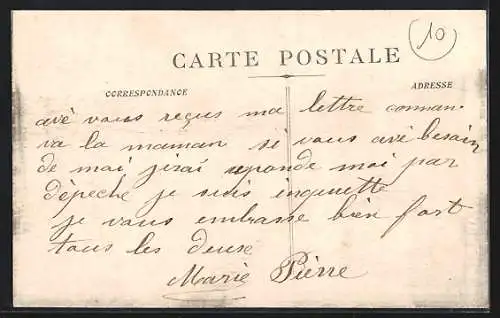 10
CARTE POSTALE
CORRESPONDANCE
ADRESSE
avé vous reçus ma lettre comman
va la maman si vous avé besain
de mai jirai reponde mai par
dépeche je suis inquiette
je vous embrasse bien fort
tous les deuse
Marie Pierre